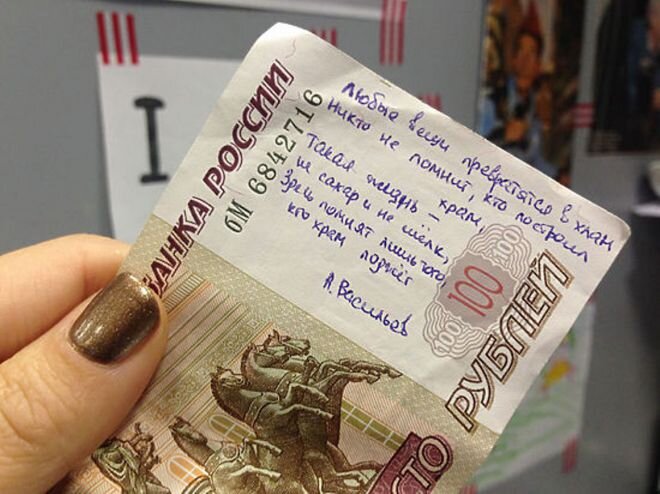 I
БАНКА РОССИИ
ОМ 6842716
Любые вещи превратятся в хлам
никто не помнит, кто построил
храм,
Такая жизнь –
не сахар и не шёлк,
Здесь помнят лишь того,
кто храм поджёг
А. Васильев
100
100
100
РУБЛЕЙ
СТО